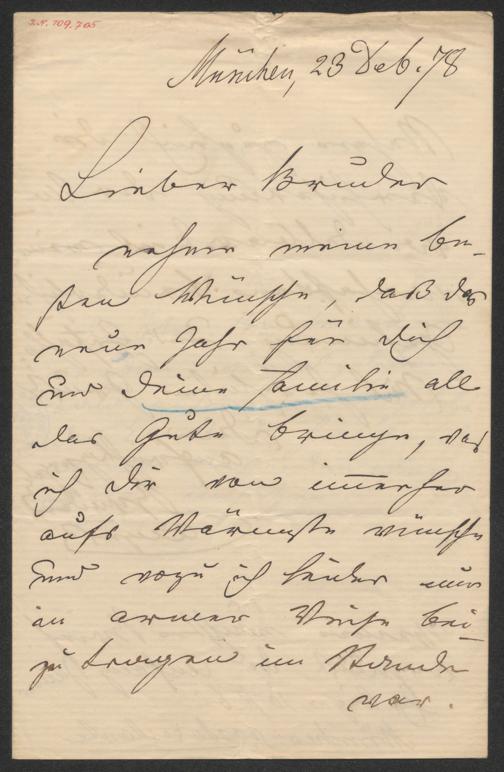 J.N. 109.705
München, 23 Deb. 78
Lieber Bruder
nehme meine be-
sten Wünsche, daß das
neue Jahr für dich
und deine Familie all
das Gute bringe, das
ich dir von immerher
aufs Wärmste wünsche
und wozu ich leider nur
in armer Weise bei-
zu tragen im Stande
war.